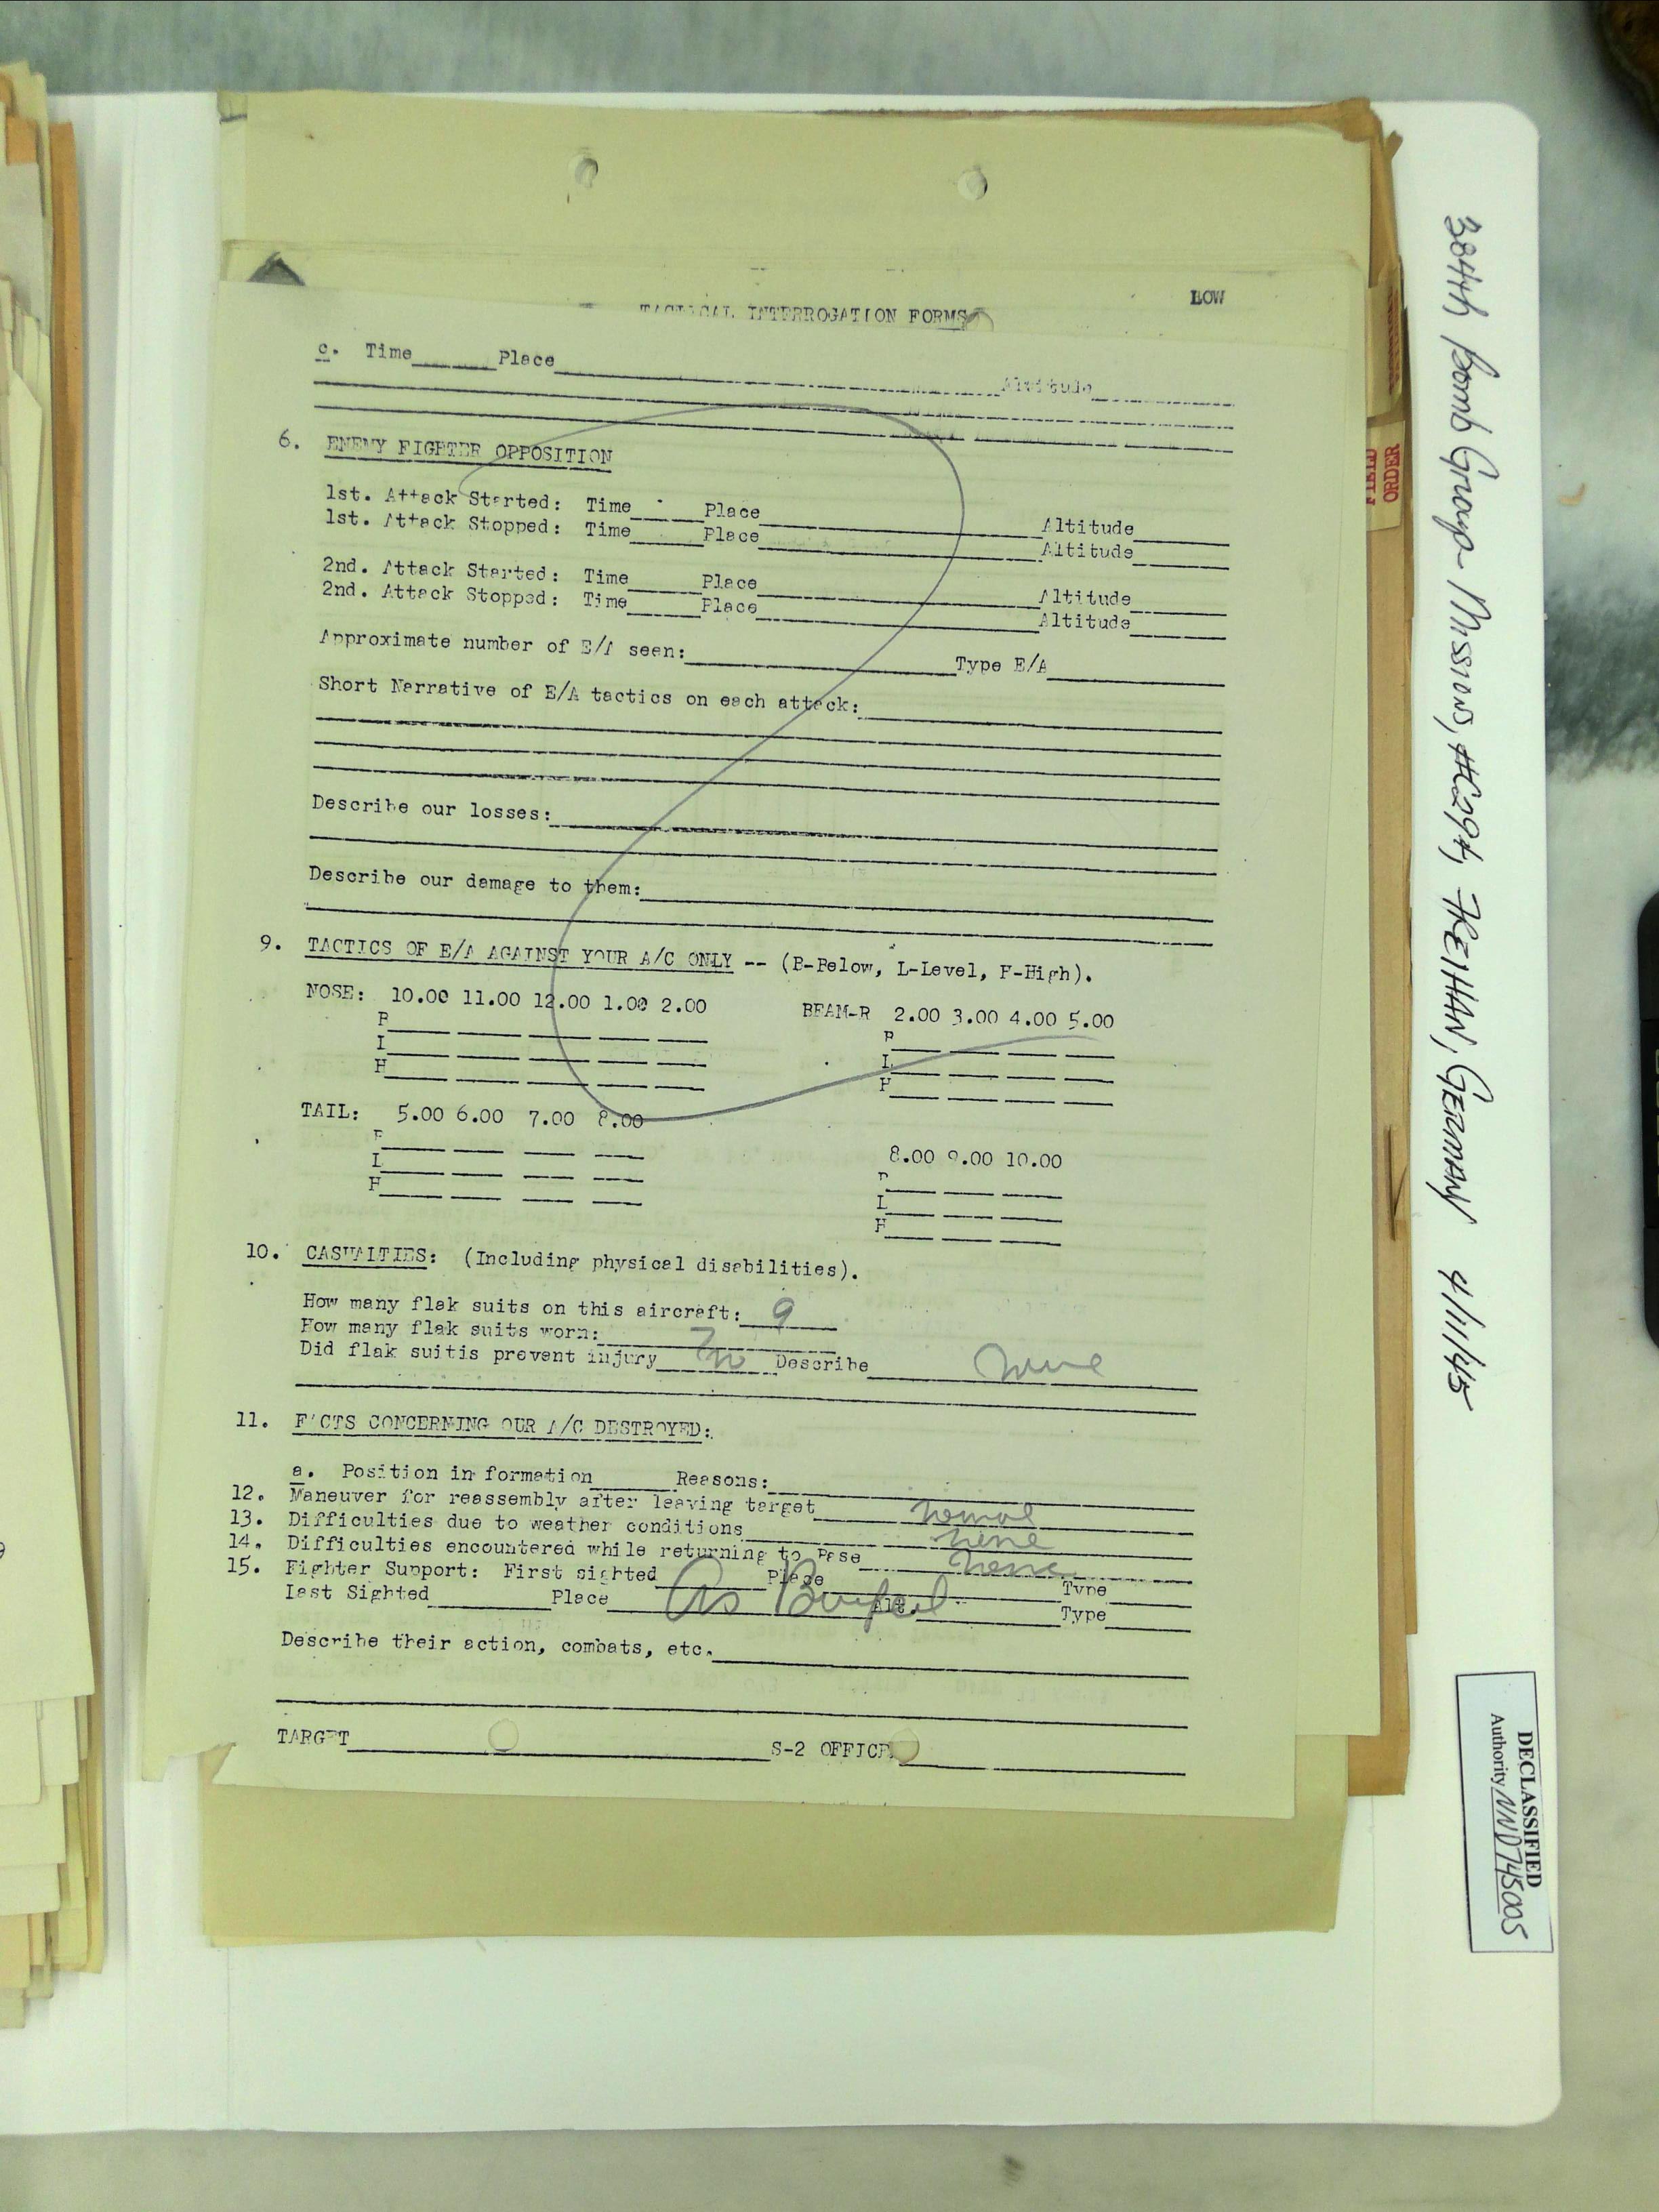 LOW
TACTICAL INTERROGATION FORMS
c. Time______Place______Altitude______
6. ENEMY FIGHTER OPPOSITION
1st. Attack Started: Time_____Place_____Altitude_____
1st. Attack Stopped: Time_____Place_____Altitude_____
2nd. Attack Started: Time_____Place_____Altitude_____
2nd. Attack Stopped: Time_____Place_____Altitude_____
Approximate number of E/A seen:_____Type E/A_____
Short Narrative of E/A tactics on each attack:_____
Describe our losses:_____
Describe our damage to them:_____
9. TACTICS OF E/A AGAINST YOUR A/C ONLY -- (B-Below, L-Level, H-High).
NOSE: 10.00 11.00 12.00 1.00 2.00 BEAM-R 2.00 3.00 4.00 5.00
B
L
H
B
L
H
TAIL: 5.00 6.00 7.00 8.00
B
L
H
8.00 9.00 10.00
B
L
H
10. CASUALTIES: (Including physical disabilities).
How many flak suits on this aircraft: 9
How many flak suits worn: 7
Did flak suitis prevent injury no Describe none
11. FACTS CONCERNING OUR A/C DESTROYED:
a. Position in formation_____Reasons:_____
12. Maneuver for reassembly after leaving target normal
13. Difficulties due to weather conditions none
14. Difficulties encountered while returning to Base none
15. Fighter Support: First sighted_____Place_____Type_____
Last Sighted_____Place_____Alt._____Type_____
As Briefed
Describe their action, combats, etc._____
TARGET_____S-2 OFFICER_____
FIELD
ORDER
384th Bomb Group - Missions, #294, FREIHAN, GERMANY 4/11/45
DECLASSIFIED
Authority NND745005